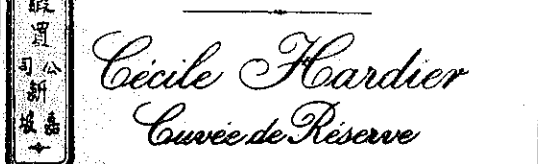 置
司公
新
坡
Cécile Hardier
Cuvée de Réserve